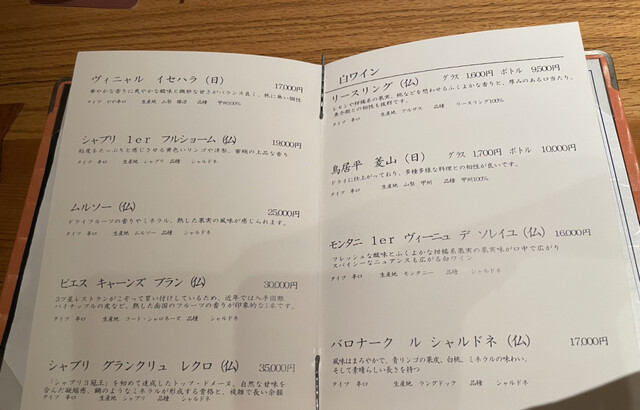 白ワイン
リースリング(仏) グラス 1,600円 ボトル 9,500円
レモンや柑橘系の果実、桃などを想わせるふくよかな香りと、厚みのある口当たり。
魚介類との相性も抜群です。
タイプ 辛口 生産地 アルザス 品種 リースリング100%
鳥居平 菱山(日) グラス 1,700円 ボトル 10,000円
ドライに仕上がっており、多種多様な料理との相性が良いです。
タイプ 辛口 生産地 山梨 甲州 品種 甲州100%
モンタニ 1er ヴィーニュ デ ソレイユ(仏) 16,000円
フレッシュな酸味とふくよかな柑橘系果実の果実味が口中で広がり
スパイシーなニュアンスも広がる白ワイン
タイプ 辛口 生産地 モンタニー 品種 シャルドネ
バロナーク ル シャルドネ(仏) 17,000円
風味はまろやかで、青リンゴの果皮、白桃、ミネラルの味わい、
そして素晴らしい長さを持つ
タイプ 辛口 生産地 ラングドック 品種 シャルドネ
ヴィニャル イセハラ(日) 17,000円
華やかな香りに爽やかな酸味と微妙な甘さがバランス良く、桃に黒い個性
タイプ やや辛口 生産地 山梨 勝沼 品種 甲州100%
シャブリ 1er フルショーム(仏) 19,000円
粘度をたっぷりと感じさせる黄色いリンゴや洋梨、蜜桃の上品な香り
タイプ 辛口 生産地 シャブリ 品種 シャルドネ
ムルソー(仏) 25,000円
ドライフルーツの香りやミネラル、熟した果実の風味が感じられます。
タイプ 辛口 生産地 ムルソー 品種 シャルドネ
ピエス キャーンズ ブラン(仏) 30,000円
3ツ星レストランがこぞって買い付けしているため、近年では入手困難
パイナップルの皮など、熟した南国のフルーツの香りが印象的な1本です。
タイプ 辛口 生産地 コート・シャロネーズ 品種 シャルドネ
シャブリ グランクリュ レクロ(仏) 35,000円
「シャブリ3冠王」を初めて達成したトップ・ドメーヌ、自然な甘味を
含んだ凝縮感、鋼のようなミネラルが形成する骨格と、複雑で長い余韻
タイプ 辛口 生産地 シャブリ 品種 シャルドネ